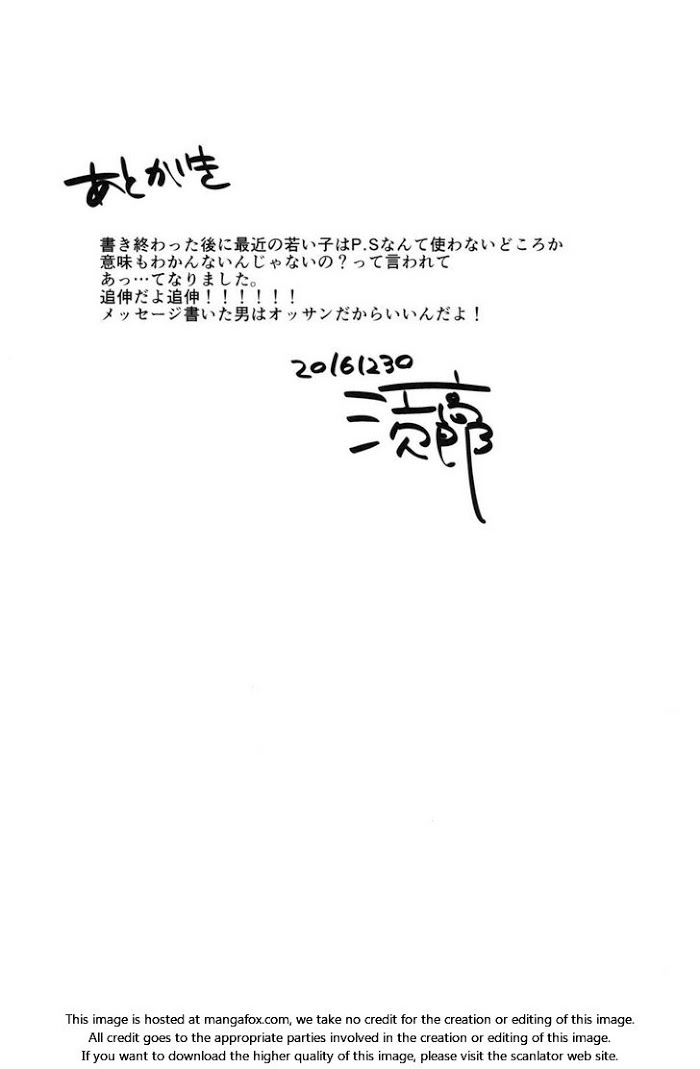 あとがき
書き終わった後に最近の若い子はP.Sなんて使わないどころか
意味もわかんないんじゃないの？って言われて
あっ…てなりました。
追伸だよ追伸！！！！！！
メッセージ書いた男はオッサンだからいいんだよ！
20161230
This image is hosted at mangafox.com, we take no credit for the creation or editing of this image.
All credit goes to the appropriate parties involved in the creation or editing of this image.
If you want to download the higher quality of this image, please visit the scanlator web site.